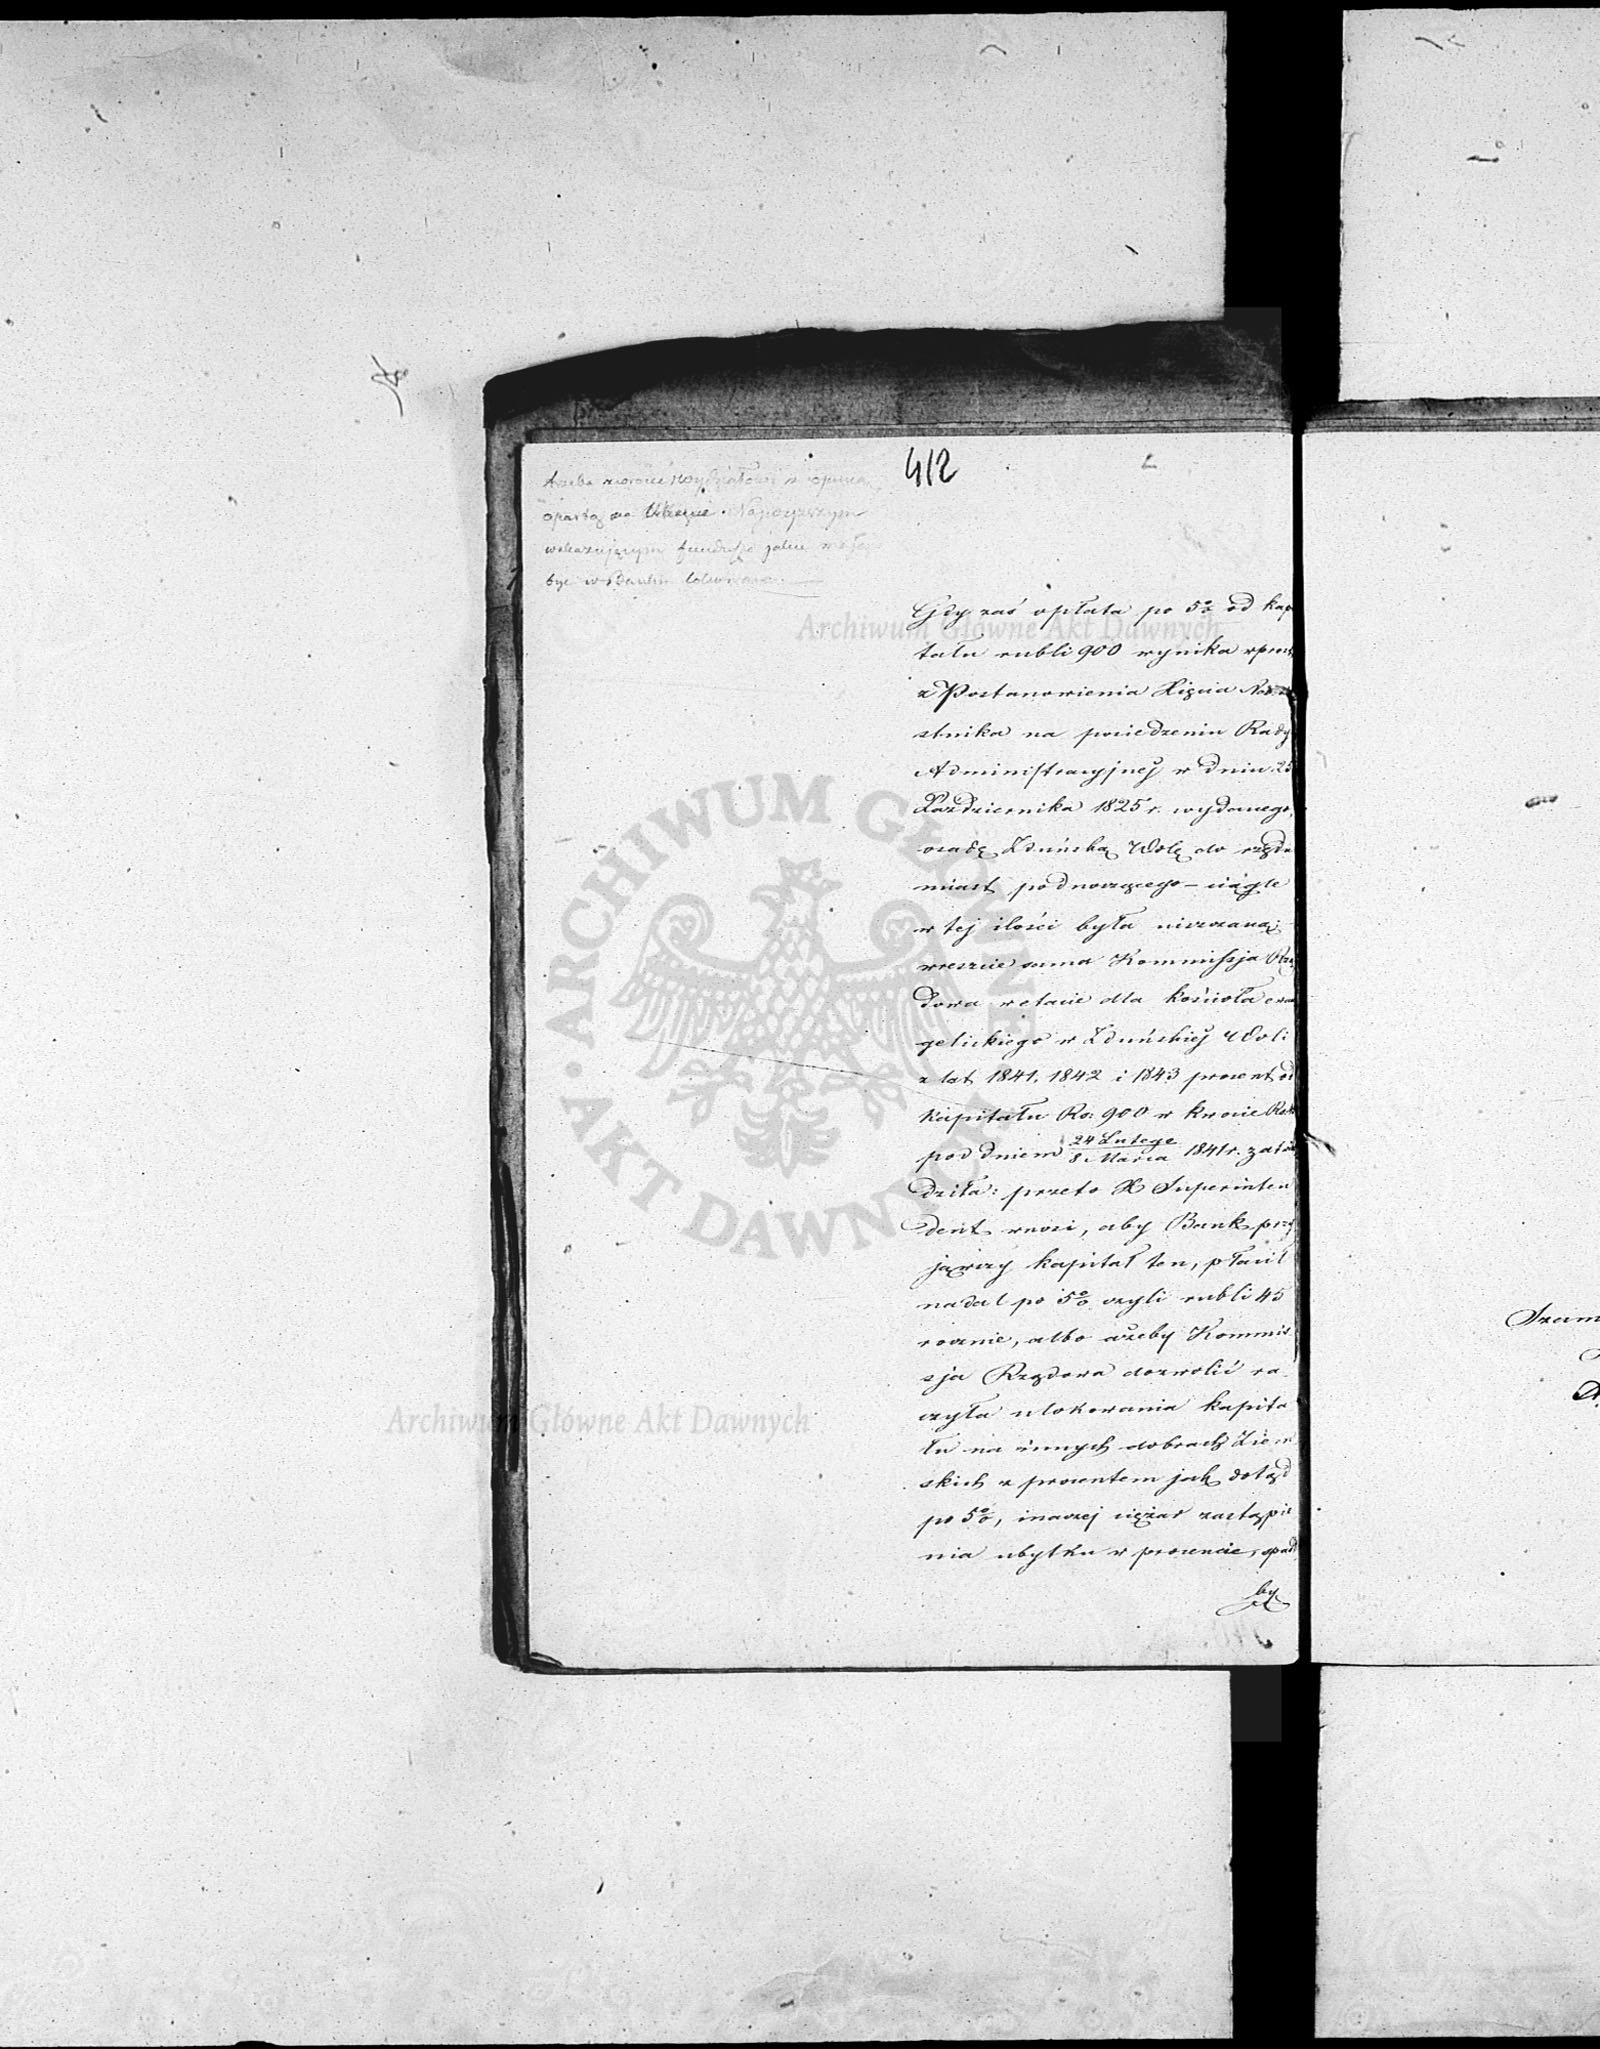 412
trzeba zwrócić Wydziałowi z opinią
opartą na Ukazie Najwyższym
wskazującym fundusze jakie mogą
być w Banku lokowane
Gdy zaś opłata po 5% od kap
tału rubli 900 wynika wprost
z Postanowienia Xięcia Namie
stnika na posiedzeniu Rady
Administracyjnej w dniu 25
Października 1825 r. wydanego,
osadę Zduńską Wolę do rzędu
miast podnoszącego – ciągle
w tej ilości była uiszczaną;
wreszcie sama Kommissja Rzą
dowa w etacie dla kościoła ewan
gelickiego w Zduńskiej Woli
z lat 1841, 1842 i 1843 procent od
Kapitału Rs: 900 w kwocie Rs 45
pod dniem 24 Lutego / 8 Marca 1841 r. zatwier
dziła: przeto X Superinten
dent wnosi, aby Bank przy
jąwszy kapitał ten, płacił
nadal po 5% czyli rubli 45
rocznie, albo ażeby Kommis
sja Rządowa dozwolić ra
czyła ulokowania kapita
łu na innych dobrach Ziem
skich z procentem jak dotąd
po 5%, inaczej ciężar zastąpie
nia ubytku w procencie, spadł
by
Archiwum Główne Akt Dawnych
ARCHIWUM GŁÓWNE AKT DAWNYCH
Archiwum Główne Akt Dawnych